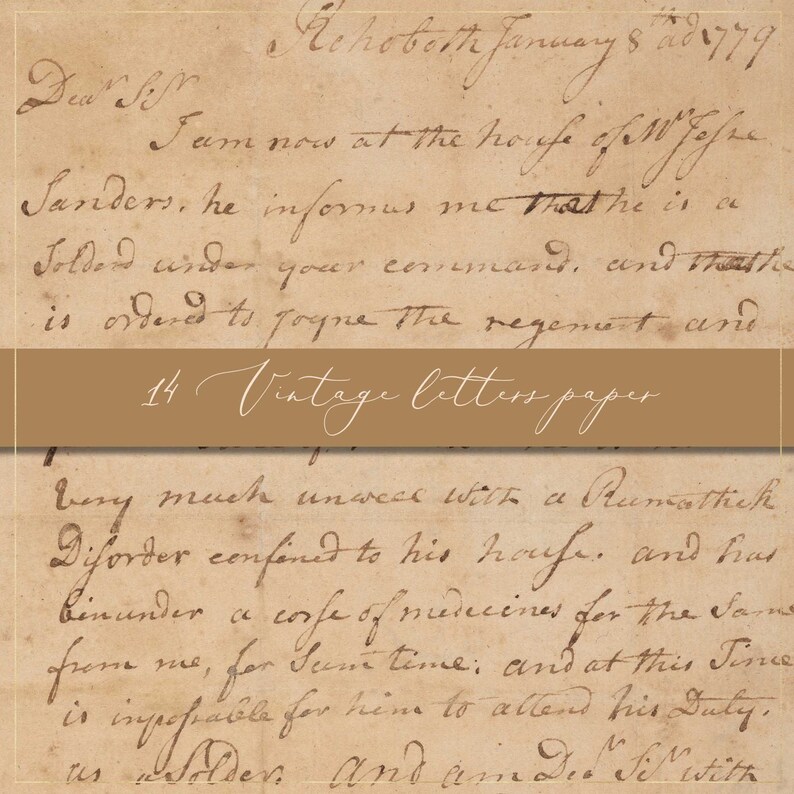 Rehoboth January 8th ad 1779
Dear Sir
I am now at the house of Mr Jesse
Sanders. he informes me that he is a
Solderd under your command. and that he
is ordered to joyne the regement and
14 Vintage letters paper
very much unwell with a Rumatick
Disorder confined to his house. and has
bin under a corse of medecines for the Same
from me, for Sum time: and at this Time
is inpossable for him to attend his Duty.
as a Solder. And am Dear Sir with